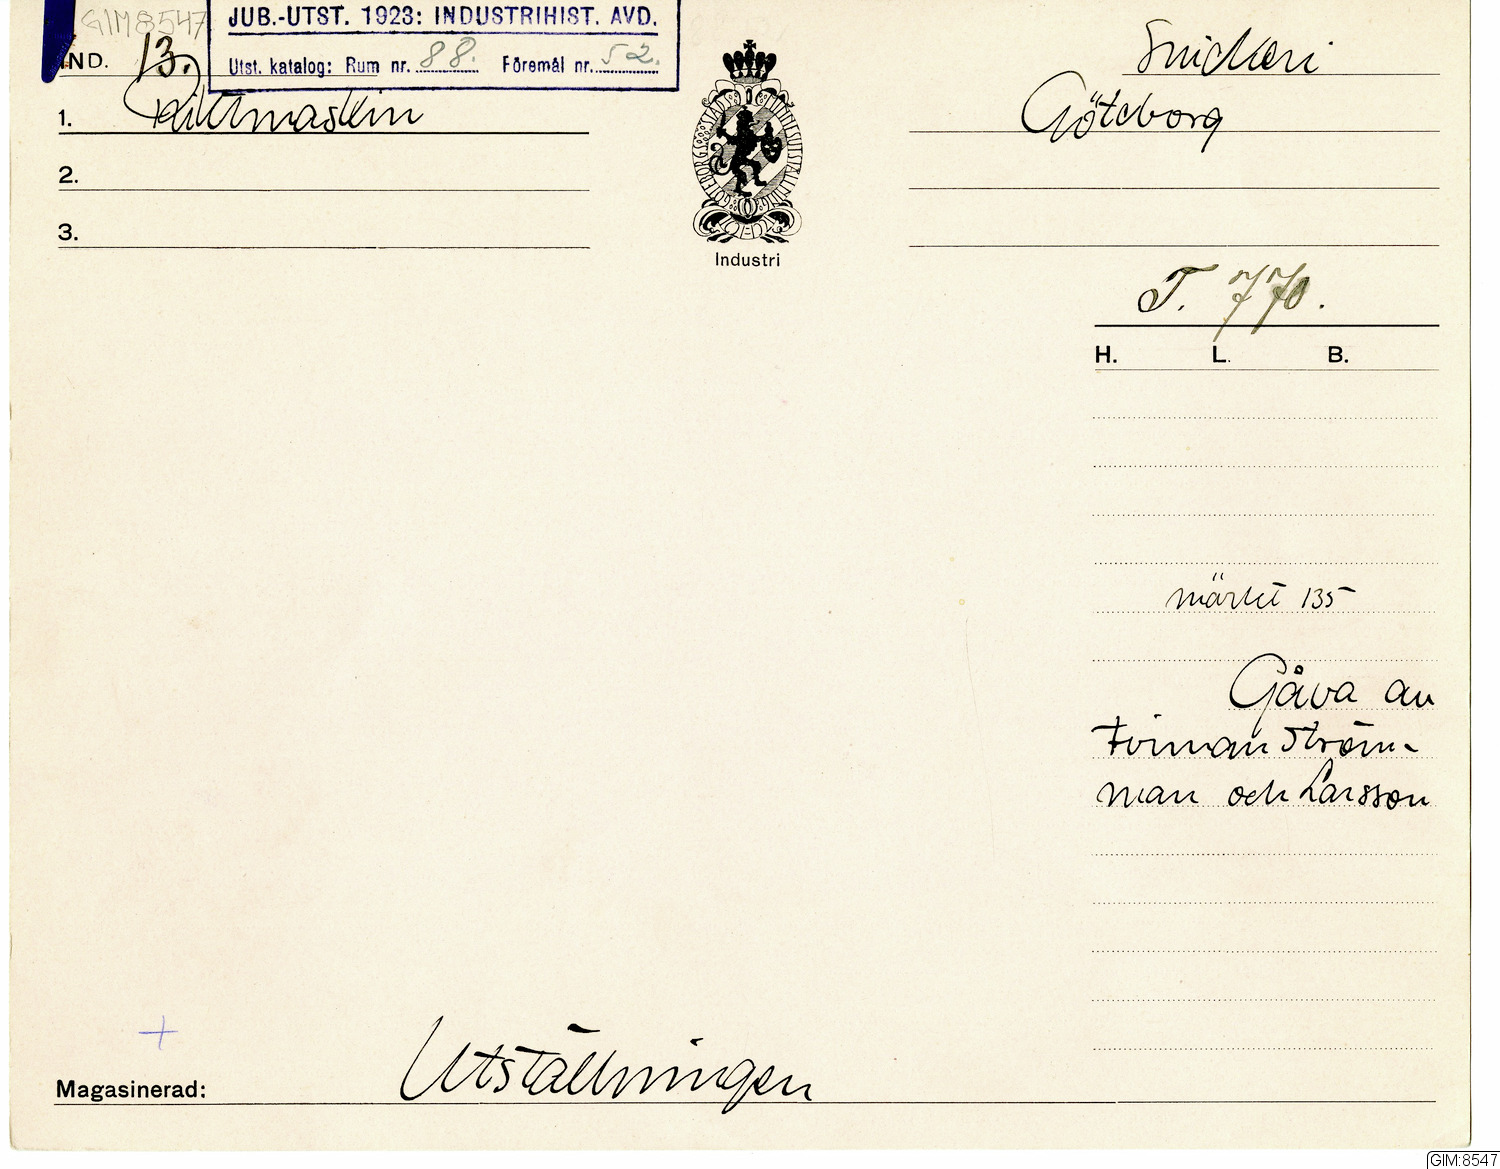 GIM 8547
JUB.-UTST. 1923: INDUSTRIHIST. AVD.
Utst. katalog: Rum nr. 88. Föremål nr. 52.
IND. 13.
Snickeri
1. Rillmaskin
Göteborg
2.
3.
GÖTEBORGS STADS MINNESUTSTÄLLNING
Industri
T. 770.
H. L. B.
märkt 135
Gåva av
Firman Ström-
man och Larsson
Utställningen
Magasinerad:
GIM:8547